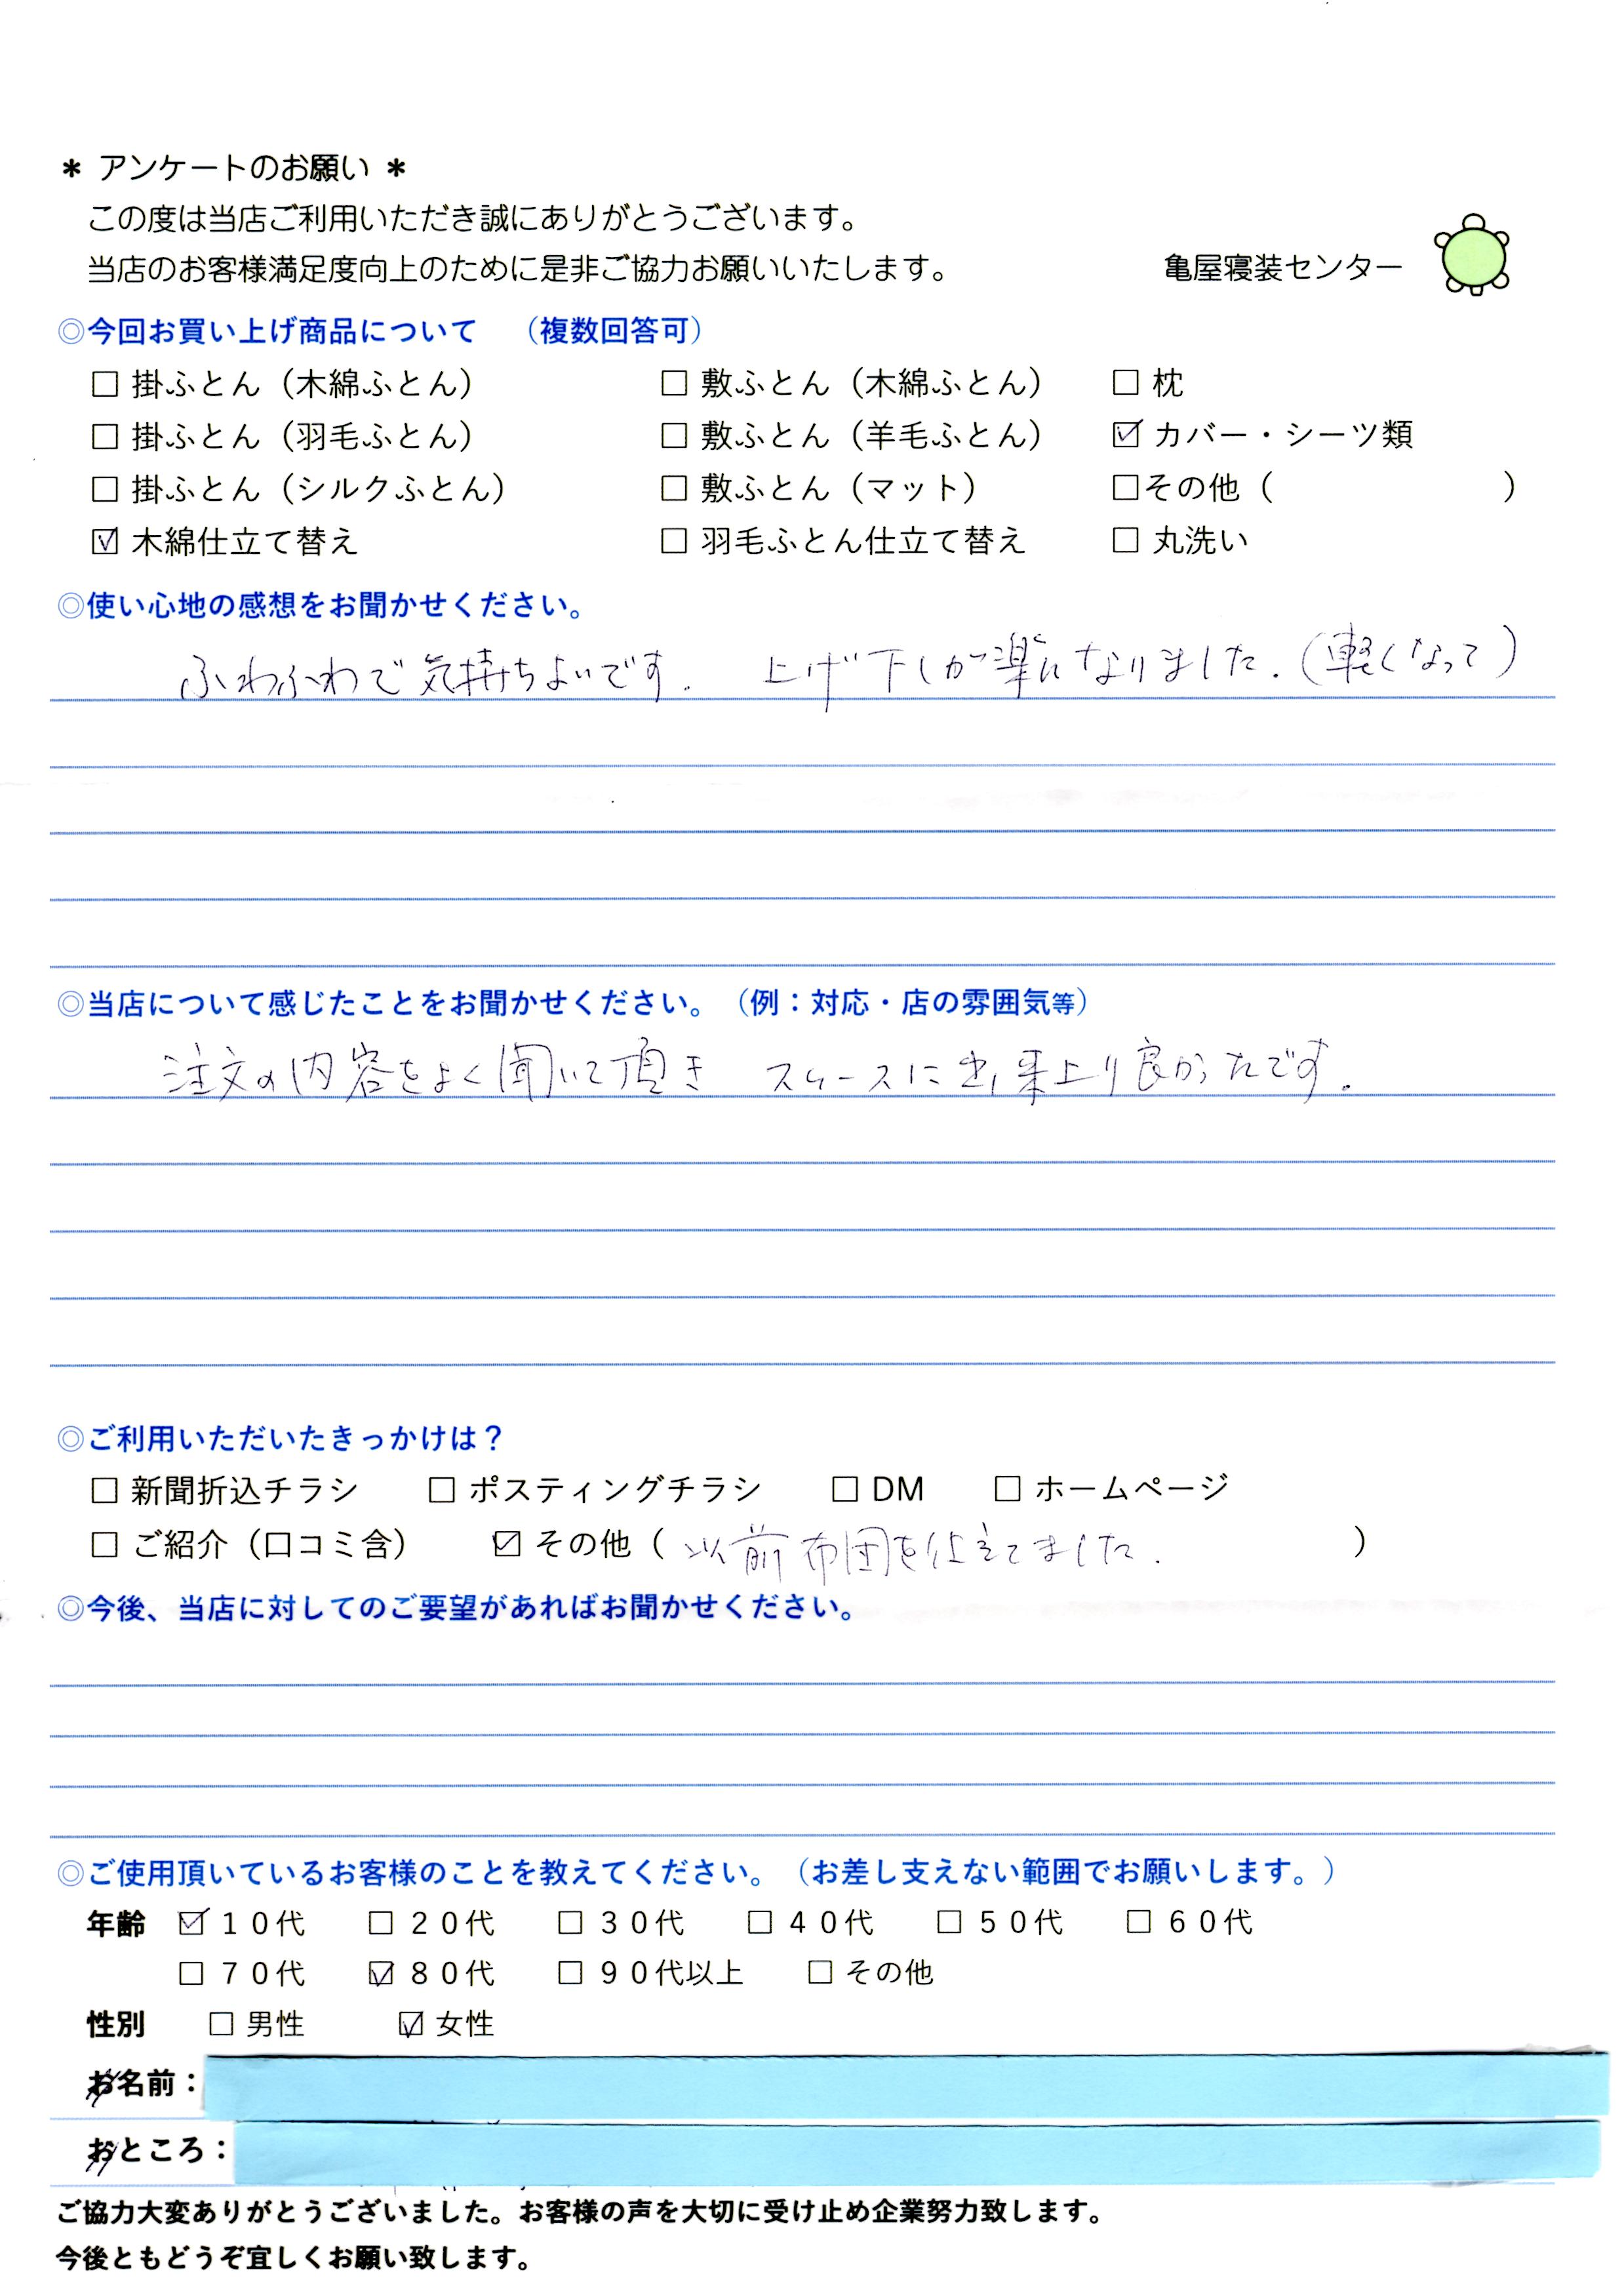 ＊ アンケートのお願い ＊
この度は当店ご利用いただき誠にありがとうございます。
当店のお客様満足度向上のために是非ご協力お願いいたします。　亀屋寝装センター
◎今回お買い上げ商品について　（複数回答可）
□ 掛ふとん（木綿ふとん）　□ 敷ふとん（木綿ふとん）　□ 枕
□ 掛ふとん（羽毛ふとん）　□ 敷ふとん（羊毛ふとん）　☑ カバー・シーツ類
□ 掛ふとん（シルクふとん）　□ 敷ふとん（マット）　□その他（　　　）
☑ 木綿仕立て替え　□ 羽毛ふとん仕立て替え　□ 丸洗い
◎使い心地の感想をお聞かせください。
ふわふわで気持ちよいです.　上げ下しが楽になりました.（軽くなって）
◎当店について感じたことをお聞かせください。（例：対応・店の雰囲気等）
注文の内容をよく聞いて頂き　スムースに出来上り良かったです.
◎ご利用いただいたきっかけは？
□ 新聞折込チラシ　□ ポスティングチラシ　□ DM　□ ホームページ
□ ご紹介（口コミ含）　☑ その他（以前布団を仕立てました.　）
◎今後、当店に対してのご要望があればお聞かせください。
◎ご使用頂いているお客様のことを教えてください。（お差し支えない範囲でお願いします。）
年齢　☑ １０代　□ ２０代　□ ３０代　□ ４０代　□ ５０代　□ ６０代
□ ７０代　☑ ８０代　□ ９０代以上　□ その他
性別　□ 男性　☑ 女性
お名前：
おところ：
ご協力大変ありがとうございました。お客様の声を大切に受け止め企業努力致します。
今後ともどうぞ宜しくお願い致します。